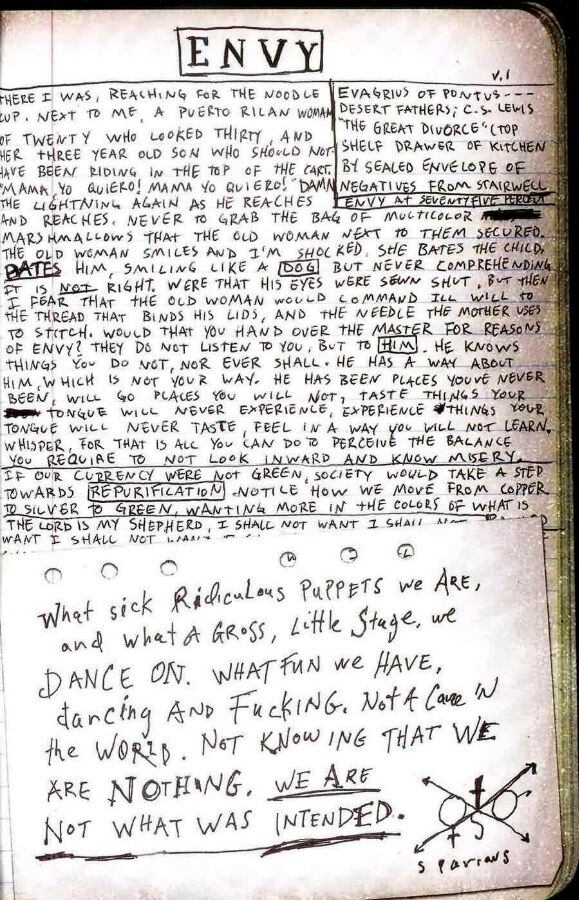 ENVY
V.1
THERE I WAS, REACHING FOR THE NOODLE
CUP. NEXT TO ME, A PUERTO RICAN WOMAN
OF TWENTY WHO LOOKED THIRTY, AND
HER THREE YEAR OLD SON WHO SHOULD NOT
HAVE BEEN RIDING IN THE TOP OF THE CART.
"MAMA YO QUIERO! MAMA YO QUIERO!" DAMN
THE LIGHTNING AGAIN AS HE REACHES
EVAGRIUS OF PONTUS----
DESERT FATHERS; C.S. LEWIS
"THE GREAT DIVORCE" (TOP
SHELF DRAWER OF KITCHEN
BY SEALED ENVELOPE OF
NEGATIVES FROM STAIRWELL
ENVY AT SEVENTY FIVE PERCENT
AND REACHES. NEVER TO GRAB THE BAG OF MULTICOLOR
MARSHMALLOWS THAT THE OLD WOMAN NEXT TO THEM SECURED.
THE OLD WOMAN SMILES AND I'M SHOCKED. SHE BATES THE CHILD,
BATES HIM, SMILING LIKE A DOG BUT NEVER COMPREHENDING
IT IS NOT RIGHT. WERE THAT HIS EYES WERE SEWN SHUT, BUT THEN
I FEAR THAT THE OLD WOMAN WOULD COMMAND ILL WILL TO
THE THREAD THAT BINDS HIS LIDS, AND THE NEEDLE THE MOTHER USES
TO STITCH. WOULD THAT YOU HAND OVER THE MASTER FOR REASONS
OF ENVY? THEY DO NOT LISTEN TO YOU, BUT TO HIM. HE KNOWS
THINGS YOU DO NOT, NOR EVER SHALL. HE HAS A WAY ABOUT
HIM, WHICH IS NOT YOUR WAY. HE HAS BEEN PLACES YOUVE NEVER
BEEN, WILL GO PLACES YOU WILL NOT, TASTE THINGS YOUR
TONGUE WILL NEVER EXPERIENCE, EXPERIENCE THINGS YOUR
TONGUE WILL NEVER TASTE, FEEL IN A WAY YOU WILL NOT LEARN.
WHISPER, FOR THAT IS ALL YOU CAN DO TO PERCEIVE THE BALANCE
YOU REQUIRE TO NOT LOOK INWARD AND KNOW MISERY.
IF OUR CURRENCY WERE NOT GREEN, SOCIETY WOULD TAKE A STEP
TOWARDS REPURIFICATION. NOTICE HOW WE MOVE FROM COPPER
TO SILVER TO GREEN, WANTING MORE IN THE COLORS OF WHAT IS
THE LORD IS MY SHEPHERD, I SHALL NOT WANT I SHALL NOT
WANT I SHALL NOT WANT
What sick Ridiculous PUPPETS we ARE,
and what A GROSS, Little Stage, we
DANCE ON. WHAT FUN we HAVE,
dancing AND Fucking. Not A Care IN
the WORLD. NOT KNOWING THAT WE
ARE NOTHING. WE ARE
NOT WHAT WAS INTENDED.